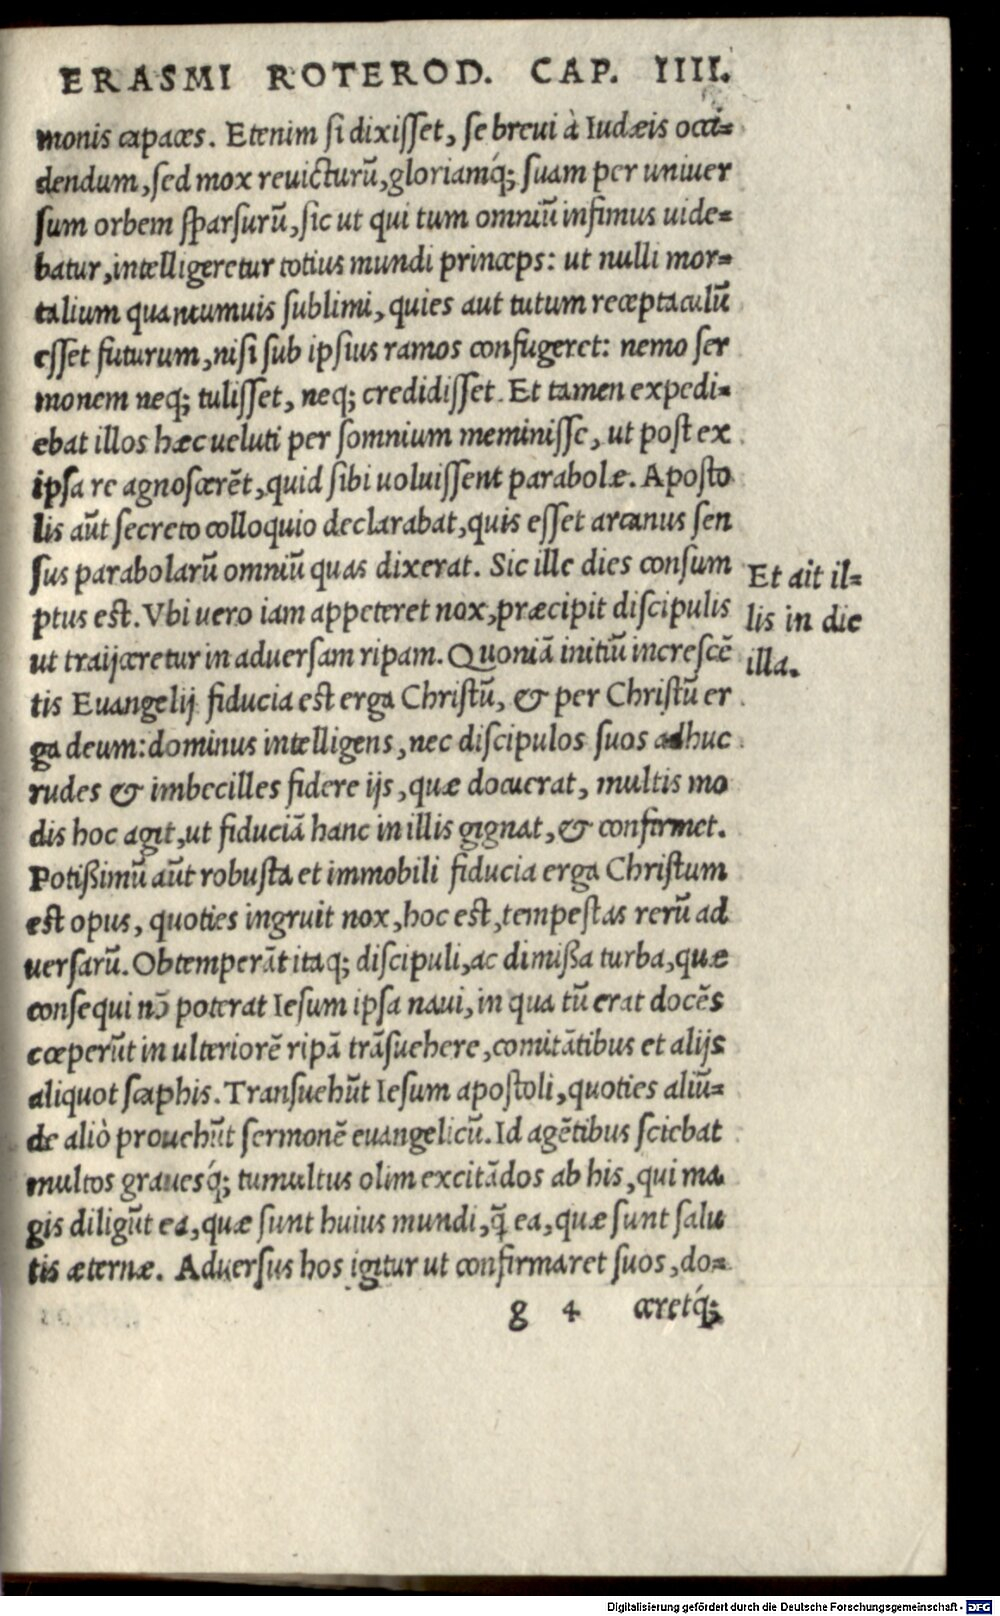 ERASMI ROTEROD. CAP. IIII.
monis capaces. Etenim si dixisset, se breui à Iudæis occi=
dendum, sed mox reuicturū, gloriamq́; suam per uniuer
sum orbem sparsurū, sic ut qui tum omniū infimus uide=
batur, intelligeretur totius mundi princeps: ut nulli mor=
talium quantumuis sublimi, quies aut tutum receptaculū
esset futurum, nisi sub ipsius ramos confugeret: nemo ser
monem neq; tulisset, neq; credidisset. Et tamen expedi=
ebat illos hæc ueluti per somnium meminisse, ut post ex
ipsa re agnoscerēt, quid sibi uoluissent parabolæ. Aposto
lis aūt secreto colloquio declarabat, quis esset arcanus sen
sus parabolarū omniū quas dixerat. Sic ille dies consum
ptus est. Vbi uero iam appeteret nox, præcipit discipulis
ut traijceretur in aduersam ripam. Quoniā initiū increscē
tis Euangelij fiducia est erga Christū, & per Christū er
ga deum: dominus intelligens, nec discipulos suos adhuc
rudes & imbecilles fidere ijs, quæ docuerat, multis mo
dis hoc agit, ut fiduciā hanc in illis gignat, & confirmet.
Potißimū aūt robusta et immobili fiducia erga Christum
est opus, quoties ingruit nox, hoc est, tempestas rerū ad
uersarū. Obtemperāt itaq; discipuli, ac dimißa turba, quæ
consequi nō poterat Iesum ipsa naui, in qua tū erat docēs
cœperūt in ulteriorē ripā trāsuehere, comitātibus et alijs
aliquot scaphis. Transuehūt Iesum apostoli, quoties aliū=
de aliò prouehūt sermonē euangelicū. Id agētibus sciebat
multos grauesq́; tumultus olim excitādos ab his, qui ma
gis diligūt ea, quæ sunt huius mundi, q̄ ea, quæ sunt salu
tis æternæ. Aduersus hos igitur ut confirmaret suos, do=
g 4 ceretq́;
Et ait il=
lis in die
illa.
Digitalisierung gefördert durch die Deutsche Forschungsgemeinschaft - DFG